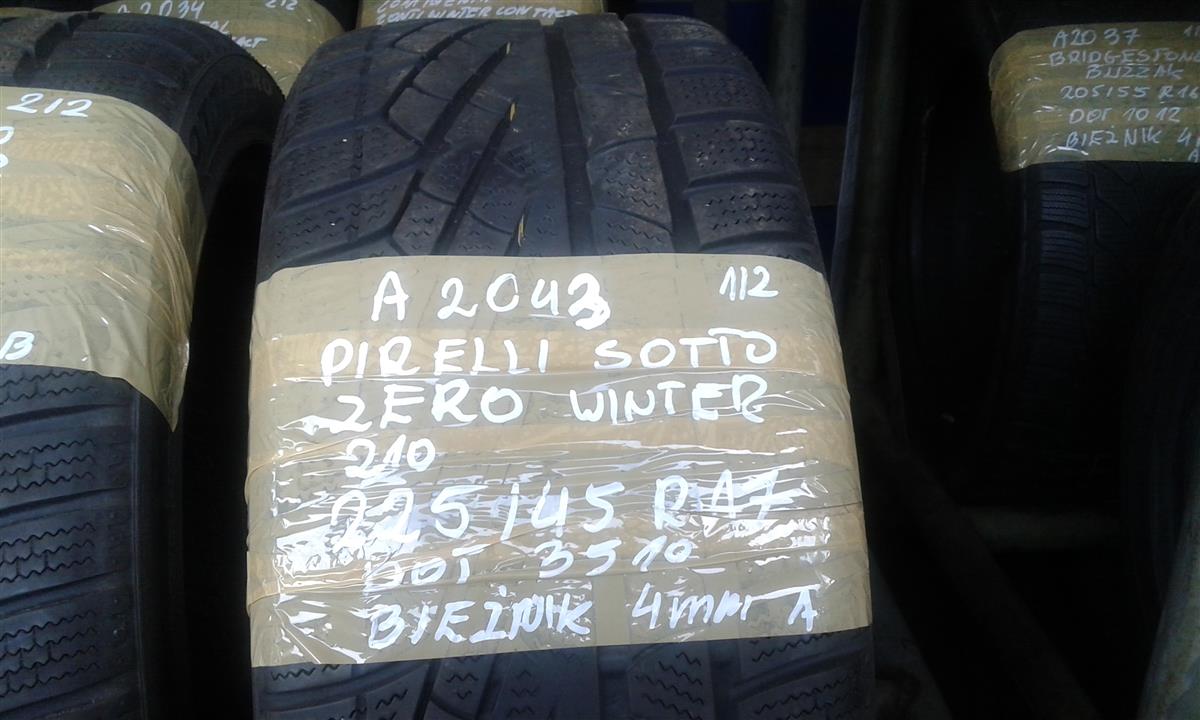 A 2034 212
CONTI WINTER CONTACT
A2037
BRIDGESTONE
BLIZZAK
205/55 R16
DOT 1012
BIEŻNIK 4
212
B
A 2043 1/2
PIRELLI SOTTO
ZERO WINTER
210
225/45 R17
DOT 3510
BIEŻNIK 4mm A